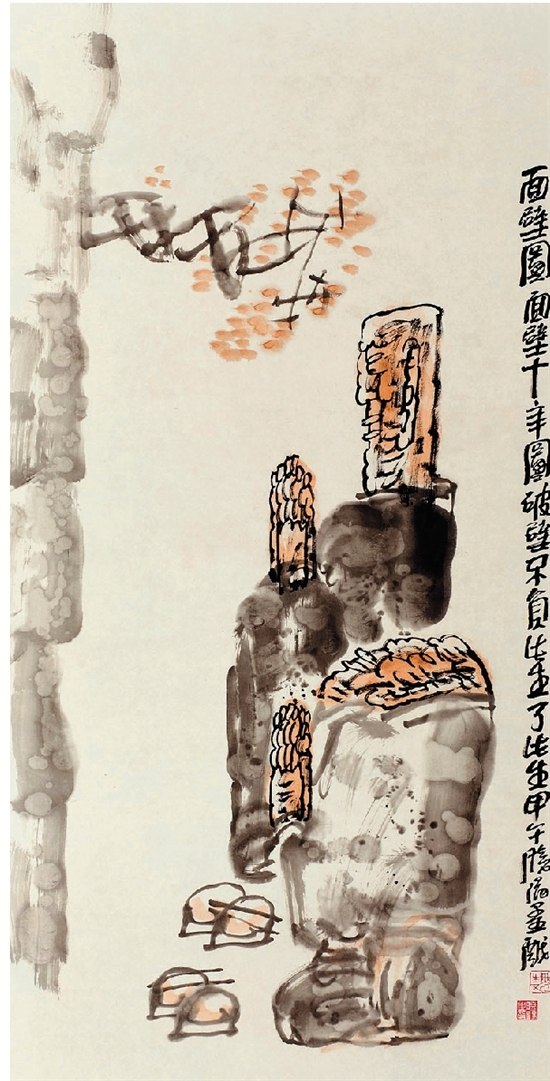 面壁圖面壁十年圖破壁不負此生了此生甲午